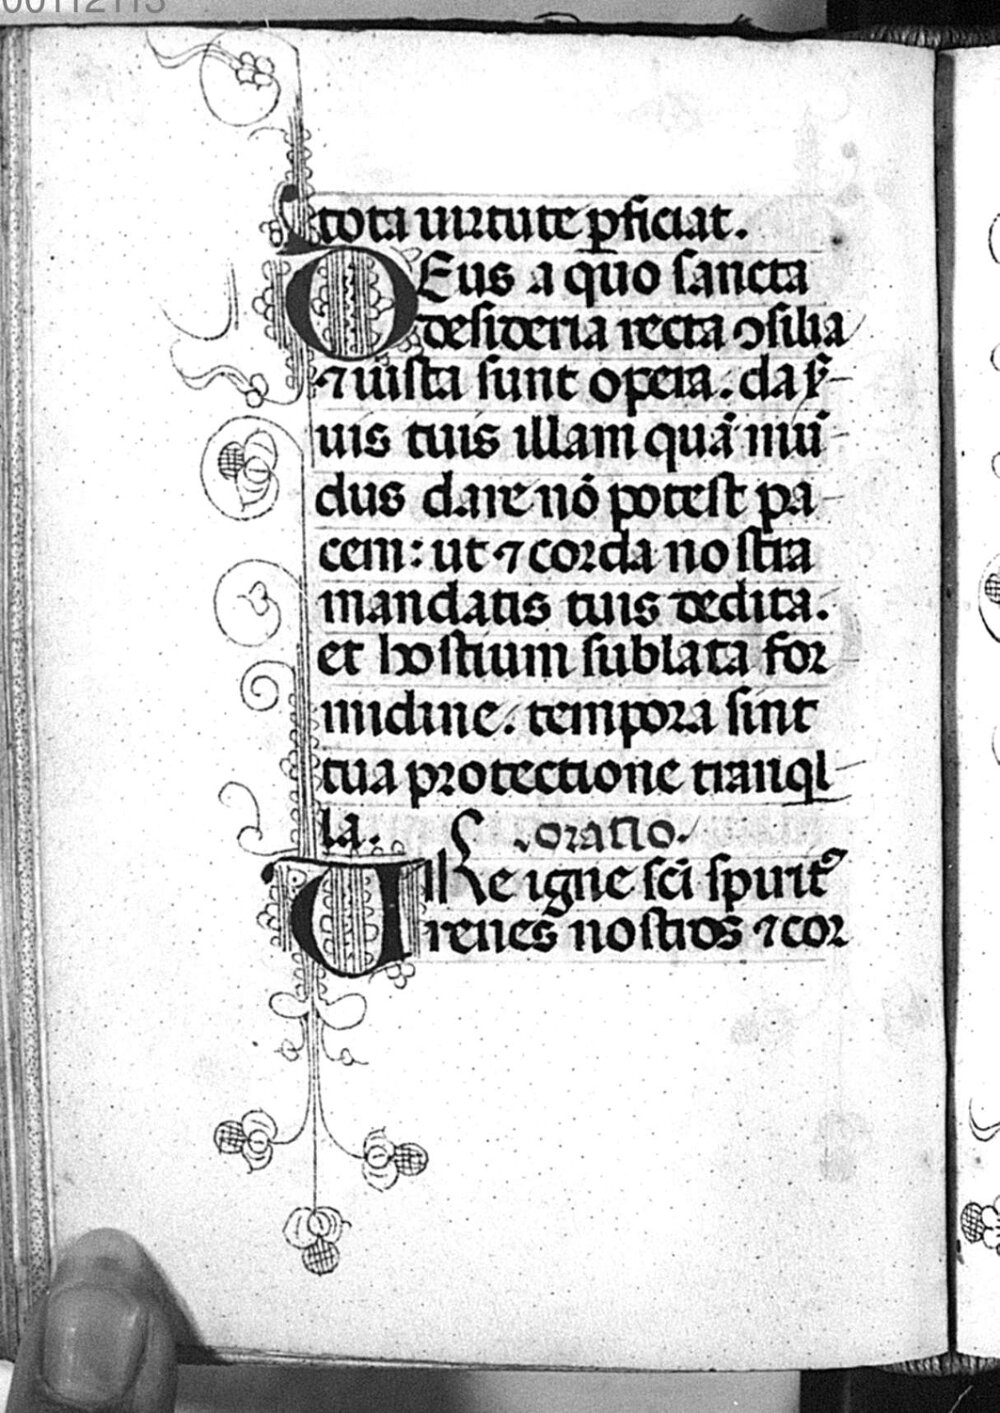 00112113
tota uirtute ꝑficiat.
DEus a quo sancta
desideria recta ꝯsilia
⁊ iusta sunt opera. da ẜ
uis tuis illam quā mū
dus dare nō potest pa
cem: ut ⁊ corda nostra
mandatis tuis dedita.
et hostium sublata for
midine. tempora sint
tua protectione tranqͥl
la. oratio.
URe igne sc̄i spiritꝰ
renes nostros ⁊ cor